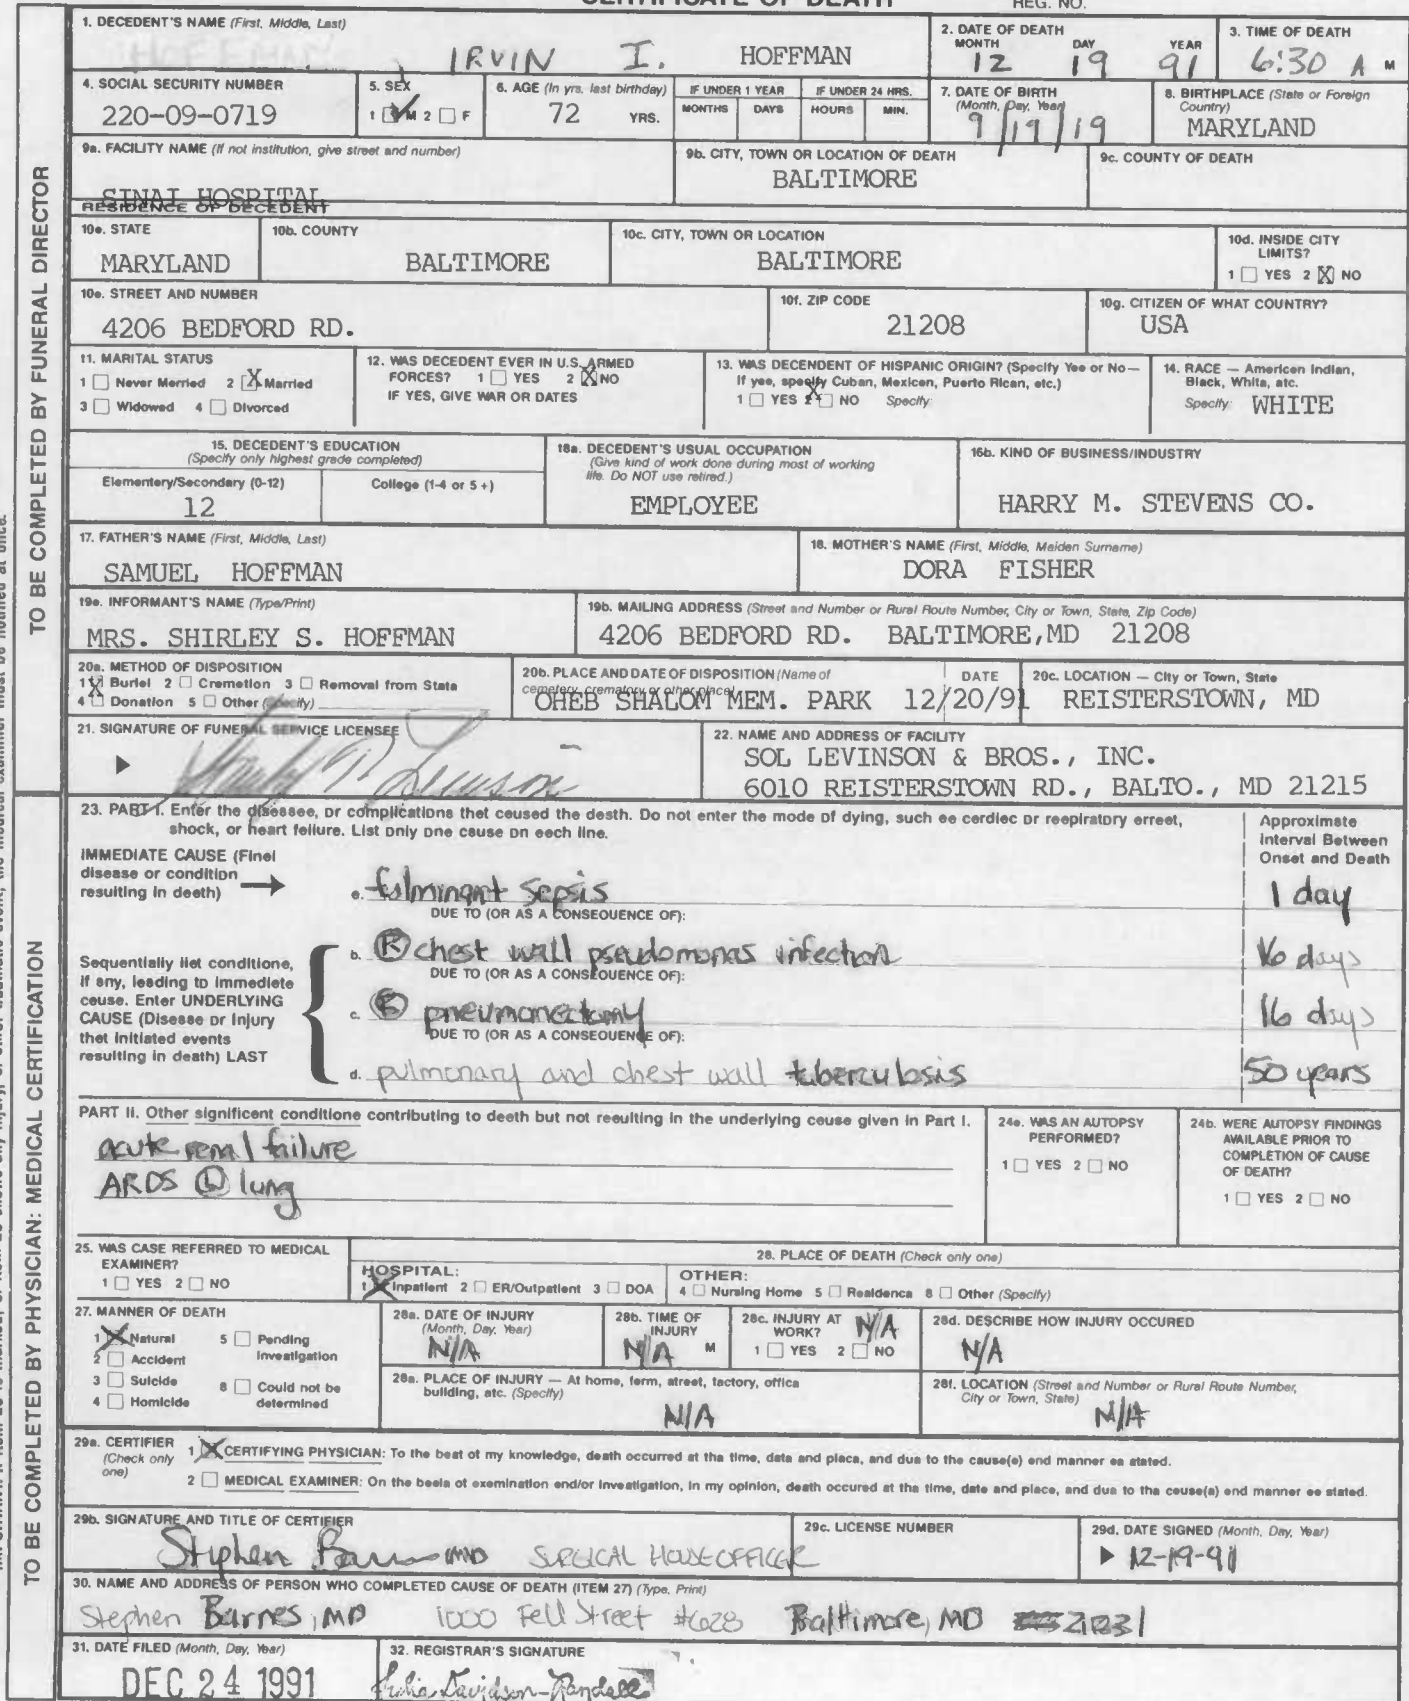 CERTIFICATE OF DEATH REG. NO.
1. DECEDENT'S NAME (First, Middle, Last)
HOFFMAN
IRVIN I. HOFFMAN
2. DATE OF DEATH
MONTH DAY YEAR
12 19 91
3. TIME OF DEATH
6:30 A M
4. SOCIAL SECURITY NUMBER
220-09-0719
5. SEX
1 M 2 F
6. AGE (In yrs. last birthday)
72 YRS.
IF UNDER 1 YEAR
MONTHS DAYS
IF UNDER 24 HRS.
HOURS MIN.
7. DATE OF BIRTH
(Month, Day, Year)
9/19/19
8. BIRTHPLACE (State or Foreign
Country)
MARYLAND
9a. FACILITY NAME (If not institution, give street and number)
SINAI HOSPITAL
9b. CITY, TOWN OR LOCATION OF DEATH
BALTIMORE
9c. COUNTY OF DEATH
RESIDENCE OF DECEDENT
10a. STATE
MARYLAND
10b. COUNTY
BALTIMORE
10c. CITY, TOWN OR LOCATION
BALTIMORE
10d. INSIDE CITY
LIMITS?
1 YES 2 X NO
10e. STREET AND NUMBER
4206 BEDFORD RD.
10f. ZIP CODE
21208
10g. CITIZEN OF WHAT COUNTRY?
USA
11. MARITAL STATUS
1 Never Married 2 X Married
3 Widowed 4 Divorced
12. WAS DECEDENT EVER IN U.S. ARMED
FORCES? 1 YES 2 X NO
IF YES, GIVE WAR OR DATES
13. WAS DECENDENT OF HISPANIC ORIGIN? (Specify Yes or No—
If yes, specify Cuban, Mexican, Puerto Rican, etc.)
1 YES 2 X NO Specify:
14. RACE — American Indian,
Black, White, etc.
Specify: WHITE
15. DECEDENT'S EDUCATION
(Specify only highest grade completed)
Elementary/Secondary (0-12) College (1-4 or 5+)
12
16a. DECEDENT'S USUAL OCCUPATION
(Give kind of work done during most of working
life. Do NOT use retired.)
EMPLOYEE
16b. KIND OF BUSINESS/INDUSTRY
HARRY M. STEVENS CO.
17. FATHER'S NAME (First, Middle, Last)
SAMUEL HOFFMAN
18. MOTHER'S NAME (First, Middle, Maiden Surname)
DORA FISHER
19a. INFORMANT'S NAME (Type/Print)
MRS. SHIRLEY S. HOFFMAN
19b. MAILING ADDRESS (Street and Number or Rural Route Number, City or Town, State, Zip Code)
4206 BEDFORD RD. BALTIMORE,MD 21208
20a. METHOD OF DISPOSITION
1 X Burial 2 Cremation 3 Removal from State
4 Donation 5 Other (Specify)
20b. PLACE AND DATE OF DISPOSITION (Name of DATE
cemetery, crematory or other place)
OHEB SHALOM MEM. PARK 12/20/91
20c. LOCATION — City or Town, State
REISTERSTOWN, MD
21. SIGNATURE OF FUNERAL SERVICE LICENSEE
22. NAME AND ADDRESS OF FACILITY
SOL LEVINSON & BROS., INC.
6010 REISTERSTOWN RD., BALTO., MD 21215
TO BE COMPLETED BY FUNERAL DIRECTOR
23. PART I. Enter the diseases, or complications that caused the death. Do not enter the mode of dying, such as cardiac or respiratory arrest,
shock, or heart failure. List only one cause on each line.
Approximate
Interval Between
Onset and Death
IMMEDIATE CAUSE (Final
disease or condition
resulting in death) →
a. fulminant sepsis 1 day
DUE TO (OR AS A CONSEQUENCE OF):
Sequentially list conditions,
if any, leading to immediate
cause. Enter UNDERLYING
CAUSE (Disease or Injury
that initiated events
resulting in death) LAST
b. Ⓡ chest wall pseudomonas infection 16 days
DUE TO (OR AS A CONSEQUENCE OF):
c. Ⓡ pneumonectomy 16 days
DUE TO (OR AS A CONSEQUENCE OF):
d. pulmonary and chest wall tuberculosis 50 years
PART II. Other significant conditions contributing to death but not resulting in the underlying cause given in Part I.
acute renal failure
ARDS Ⓛ lung
24a. WAS AN AUTOPSY
PERFORMED?
1 YES 2 NO
24b. WERE AUTOPSY FINDINGS
AVAILABLE PRIOR TO
COMPLETION OF CAUSE
OF DEATH?
1 YES 2 NO
25. WAS CASE REFERRED TO MEDICAL
EXAMINER?
1 YES 2 NO
26. PLACE OF DEATH (Check only one)
HOSPITAL:
1 X Inpatient 2 ER/Outpatient 3 DOA
OTHER:
4 Nursing Home 5 Residence 6 Other (Specify)
27. MANNER OF DEATH
1 X Natural 5 Pending
Investigation
2 Accident
3 Suicide 6 Could not be
determined
4 Homicide
28a. DATE OF INJURY
(Month, Day, Year)
N/A
28b. TIME OF
INJURY
N/A M
28c. INJURY AT
WORK? N/A
1 YES 2 NO
28d. DESCRIBE HOW INJURY OCCURED
N/A
28e. PLACE OF INJURY — At home, farm, street, factory, office
building, etc. (Specify)
N/A
28f. LOCATION (Street and Number or Rural Route Number,
City or Town, State)
N/A
29a. CERTIFIER
(Check only
one)
1 X CERTIFYING PHYSICIAN: To the best of my knowledge, death occurred at the time, date and place, and due to the cause(s) and manner as stated.
2 MEDICAL EXAMINER: On the basis of examination and/or investigation, in my opinion, death occured at the time, date and place, and due to the cause(s) and manner as stated.
29b. SIGNATURE AND TITLE OF CERTIFIER
Stephen Barnes MD SURGICAL HOUSE OFFICER
29c. LICENSE NUMBER
29d. DATE SIGNED (Month, Day, Year)
12-19-91
30. NAME AND ADDRESS OF PERSON WHO COMPLETED CAUSE OF DEATH (ITEM 27) (Type, Print)
Stephen Barnes, MD 1000 Fell Street #628 Baltimore, MD 21231
31. DATE FILED (Month, Day, Year)
DEC 24 1991
32. REGISTRAR'S SIGNATURE
Julia Davidson-Randall
TO BE COMPLETED BY PHYSICIAN: MEDICAL CERTIFICATION